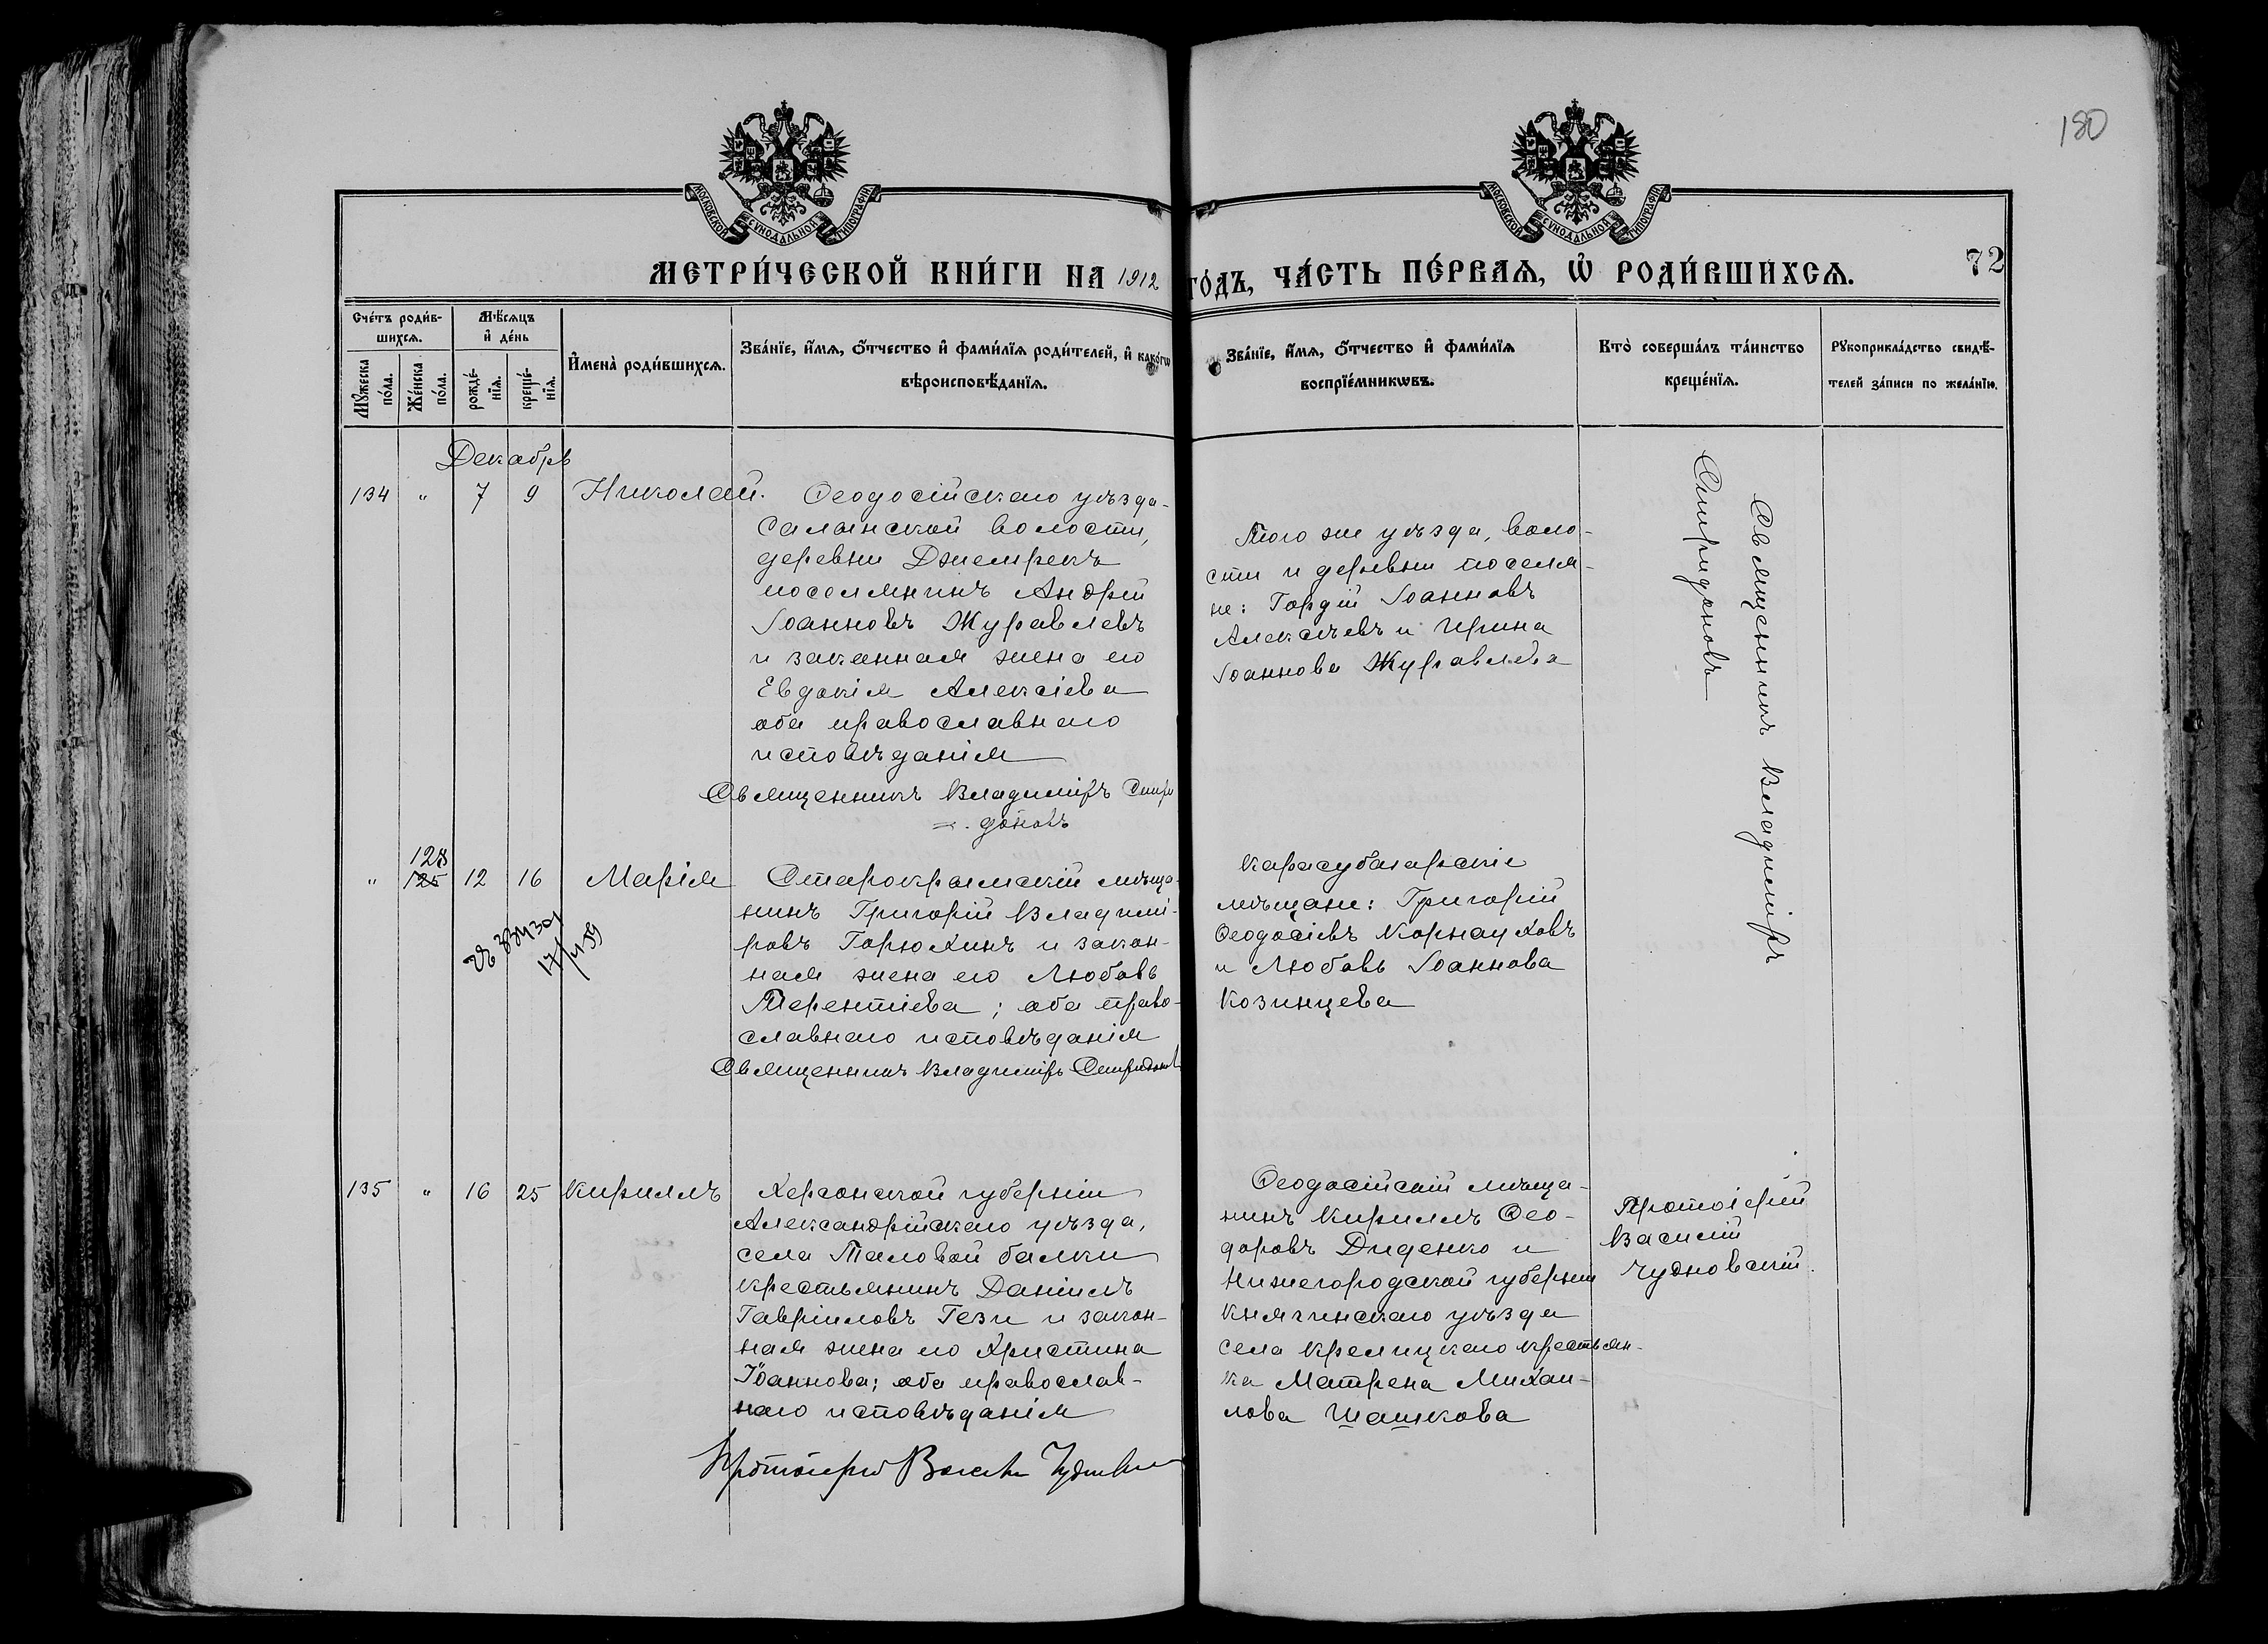 180
МОСКОВСКОЙ СѴНОДАЛЬНОЙ ТИПОГРАФІИ
МОСКОВСКОЙ СѴНОДАЛЬНОЙ ТИПОГРАФІИ
МЕТРИ́ЧЕСКОЙ КНИ́ГИ НА 1912 ГО́ДЪ, ЧА́СТЬ ПЕ́РВАѦ, Ѡ҆ РОДИ́ВШИХСѦ.
72
Сче́тъ роди́в-
шихсѧ.
Мꙋ́жеска
по́ла.
Же́нска
по́ла.
Мѣ́сѧцъ
и҆ де́нь
рожде́-
нїѧ.
креще́-
нїѧ.
И҆мена̀ роди́вшихсѧ.
Зва́нїе, и҆́мѧ, ѻ҆́тчество и҆ фами́лїѧ роди́телей, и҆ како́гѡ
вѣроисповѣ́данїѧ.
Зва́нїе, и҆́мѧ, ѻ҆́тчество и҆ фами́лїѧ
воспрїе́мникѡвъ.
Кто̀ соверша́лъ та́инство
креще́нїѧ.
Рꙋкоприкла́дство свидѣ́-
телей за́писи по жела́нїю.
Декабрь
134 " 7 9 Николай.
Ѳеодосійскаго уѣзда
Салынской волости,
деревни Джемрекъ
поселянинъ Андрей
Іоанновъ Журавлевъ
и законная жена его
Евдокія Алексіева
оба православнаго
исповѣданія
Священникъ Владиміръ Спири
=доновъ
Того же уѣзда, воло-
сти и деревни поселя-
не: Гордій Іоанновъ
Алексѣевъ и Ирина
Іоаннова Журавлева
Священникъ Владиміръ
Спиридоновъ
128
" 125 12 16 Марія
17/
Старокрымскій мѣща-
нинъ Григорій Владимі-
ровъ Горюхинъ и закон-
ная жена его Любовь
Терентіева; оба право-
славнаго исповѣданія
Священникъ Владиміръ Спиридоновъ
Карасубазарскіе
мѣщане: Григорій
Ѳеодосіевъ Корнауховъ
и Любовь Іоаннова
Козинцева
135 " 16 25 Кириллъ
Херсонской губерніи
Александрійскаго уѣзда,
села Таловой балки
крестьянинъ Даніилъ
Гавріиловъ Гези и закон-
ная жена его Христина
Іоаннова; оба православ-
наго исповѣданія
Протоіерей Василій Чудновскій
Ѳеодосійскій мѣща-
нинъ Кириллъ Ѳео-
доровъ Диденко и
Нижегородской губерніи
Княгинскаго уѣзда
села крестьян-
ка Матрена Михаи-
лова Шашкова
Протоіерей
Василій
Чудновскій.